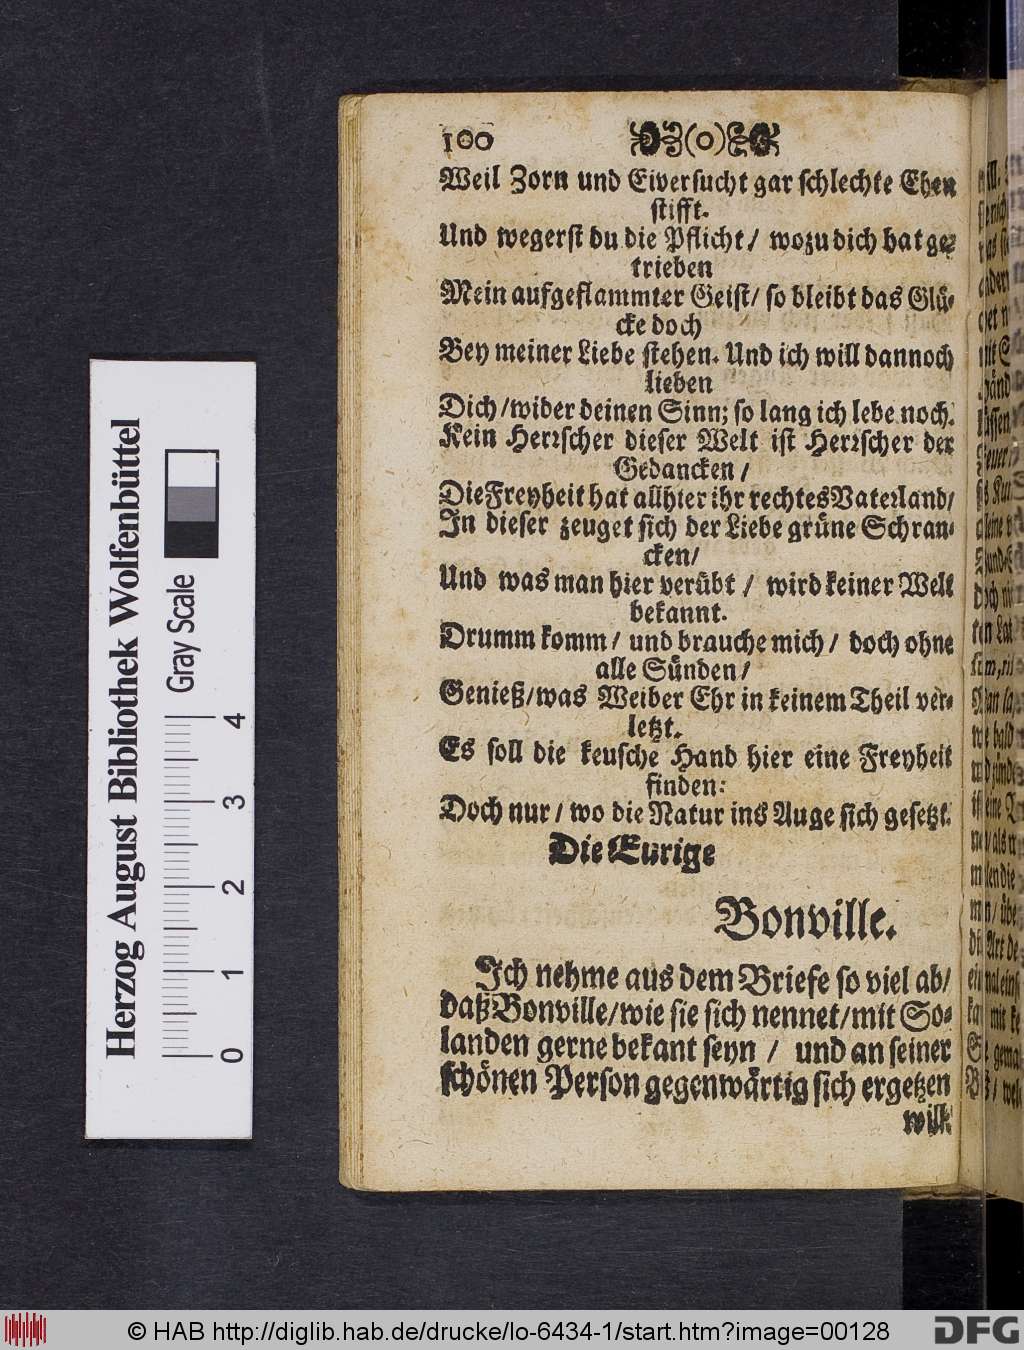 100 (o)
Weil Zorn und Eiversucht gar schlechte Ehen
stifft.
Und wegerst du die Pflicht / wozu dich hat ge-
trieben
Mein aufgeflammter Geist / so bleibt das Glü-
cke doch
Bey meiner Liebe stehen. Und ich will dannoch
lieben
Dich / wider deinen Sinn; so lang ich lebe noch.
Kein Herrscher dieser Welt ist Herrscher der
Gedancken /
Die Freyheit hat allhier ihr rechtes Vaterland /
In dieser zeuget sich der Liebe grüne Schran-
cken /
Und was man hier verübt / wird keiner Welt
bekannt.
Drumm komm / und brauche mich / doch ohne
alle Sünden /
Genieß / was Weiber Ehr in keinem Theil ver-
letzt.
Es soll die keusche Hand hier eine Freyheit
finden:
Doch nur / wo die Natur ins Auge sich gesetzt.
Die Eurige
Bonville.
Ich nehme aus dem Briefe so viel ab /
daß Bonville / wie sie sich nennet / mit So-
landen gerne bekant seyn / und an seiner
schönen Person gegenwärtig sich ergetzen
will
Herzog August Bibliothek Wolfenbüttel
Gray Scale
0 1 2 3 4
© HAB http://diglib.hab.de/drucke/lo-6434-1/start.htm?image=00128
DFG